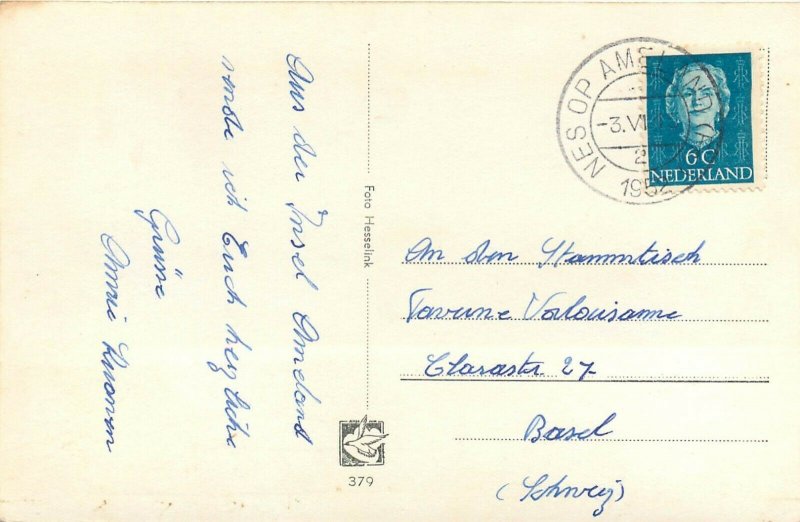 Aus der Insel Ameland
sende ich Euch herzliche
Grüsse
Foto Hesselink
379
NES OP AMELAND
-3.VI
1952
6 C
NEDERLAND
An den Stammtisch
Taverne Valaisanne
Clarastr 27
Basel
(Schweiz)